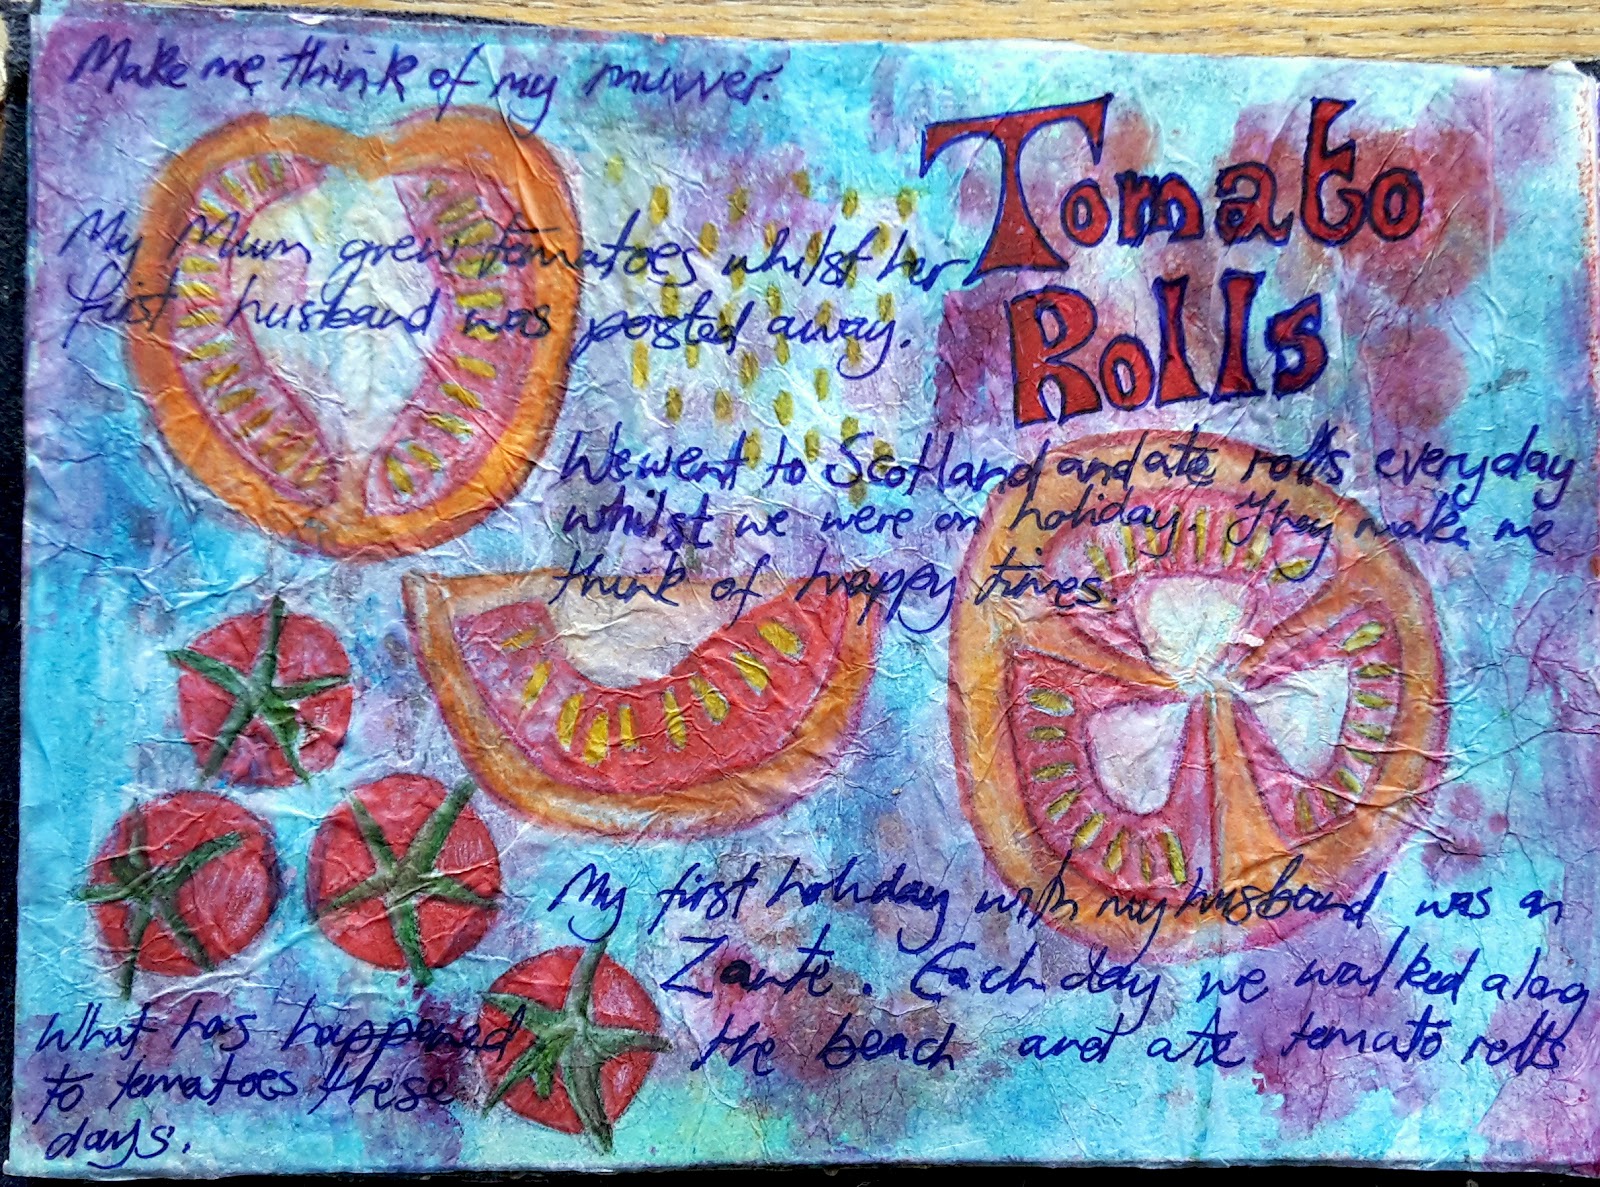 Tomato
Rolls
Make me think of my muvver.
My Mum grew tomatoes whilst her
first husband was posted away.
We went to Scotland and ate rolls everyday
whilst we were on holiday. They make me
think of happy times.
My first holiday with my husband was on
Zante. Each day we walked along
the beach and ate tomato rolls
What has happened
to tomatoes these
days.